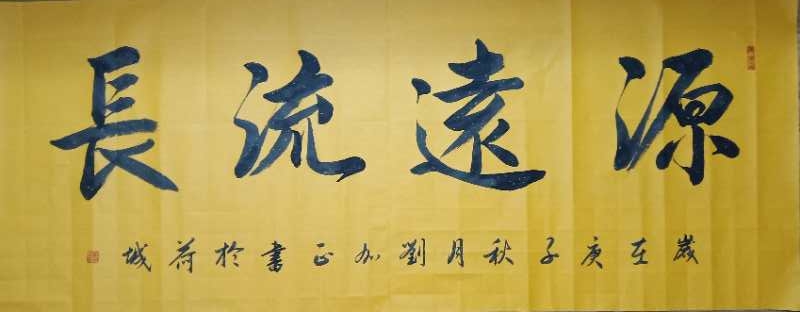 源遠流長
歲在庚子秋月劉加正書於荷城